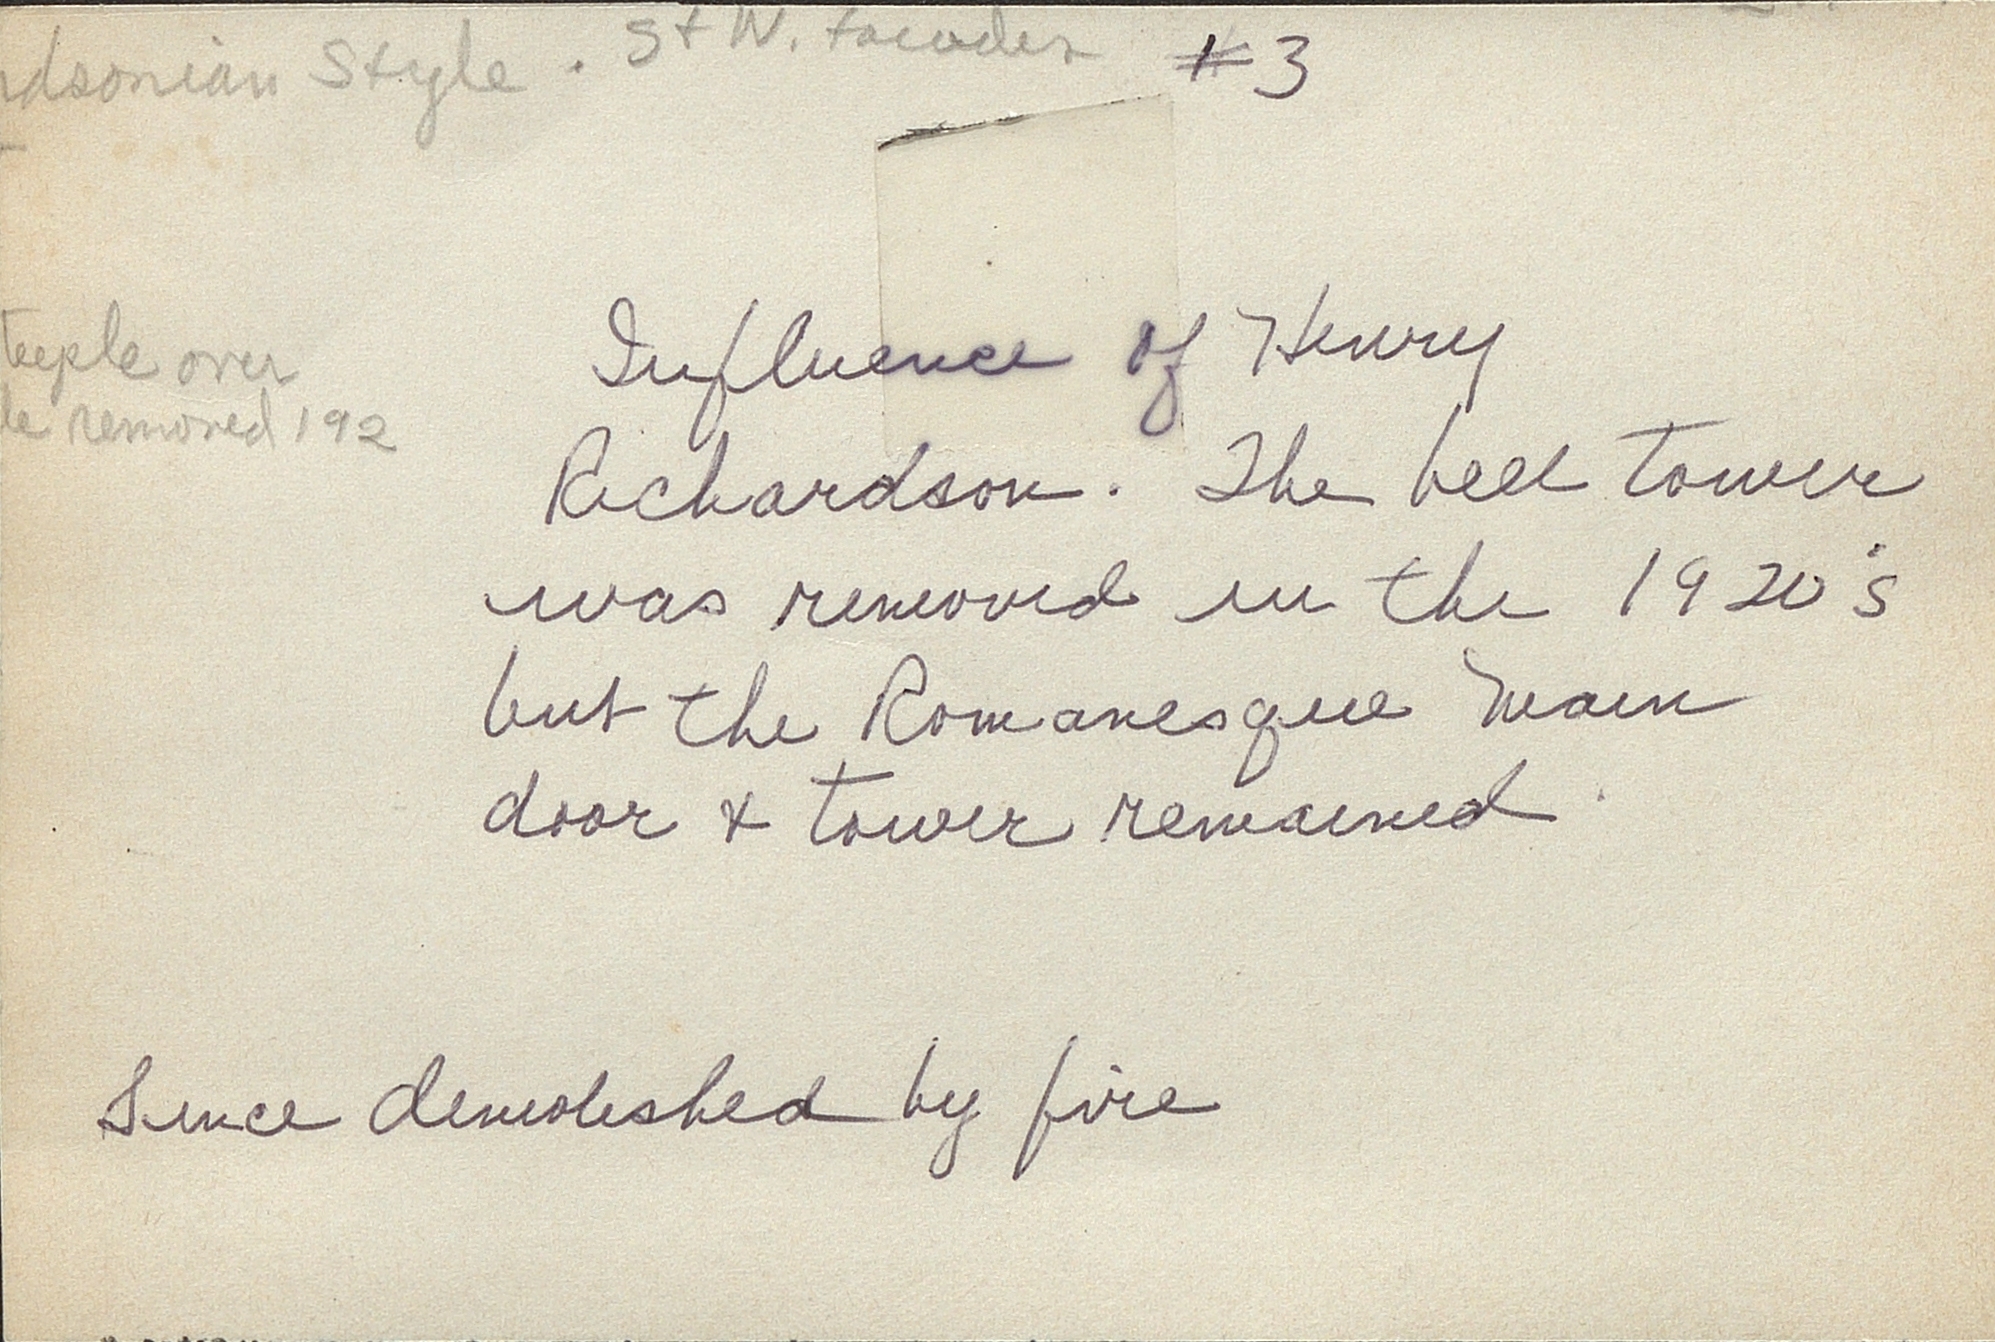 rdsonian Style. St W. facades #3
teeple over
le removed 192
Influence of Henry
Richardson. The bell tower
was removed in the 1920's
but the Romanesque main
door & tower remained.
Since demolished by fire